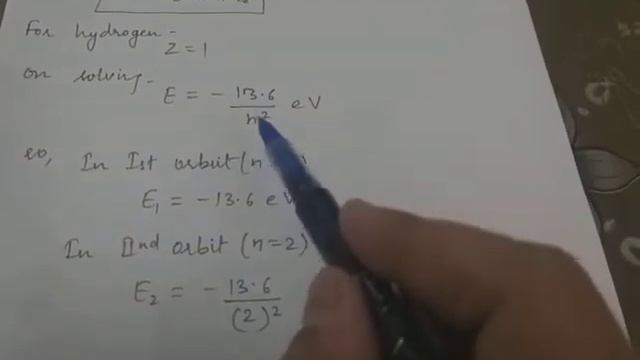 For hydrogen-
Z = 1
on solving-
E = - 13.6 / n² eV
so, In Ist orbit (n
E₁ = -13.6 eV
In IInd orbit (n=2)
E₂ = - 13.6 / (2)²